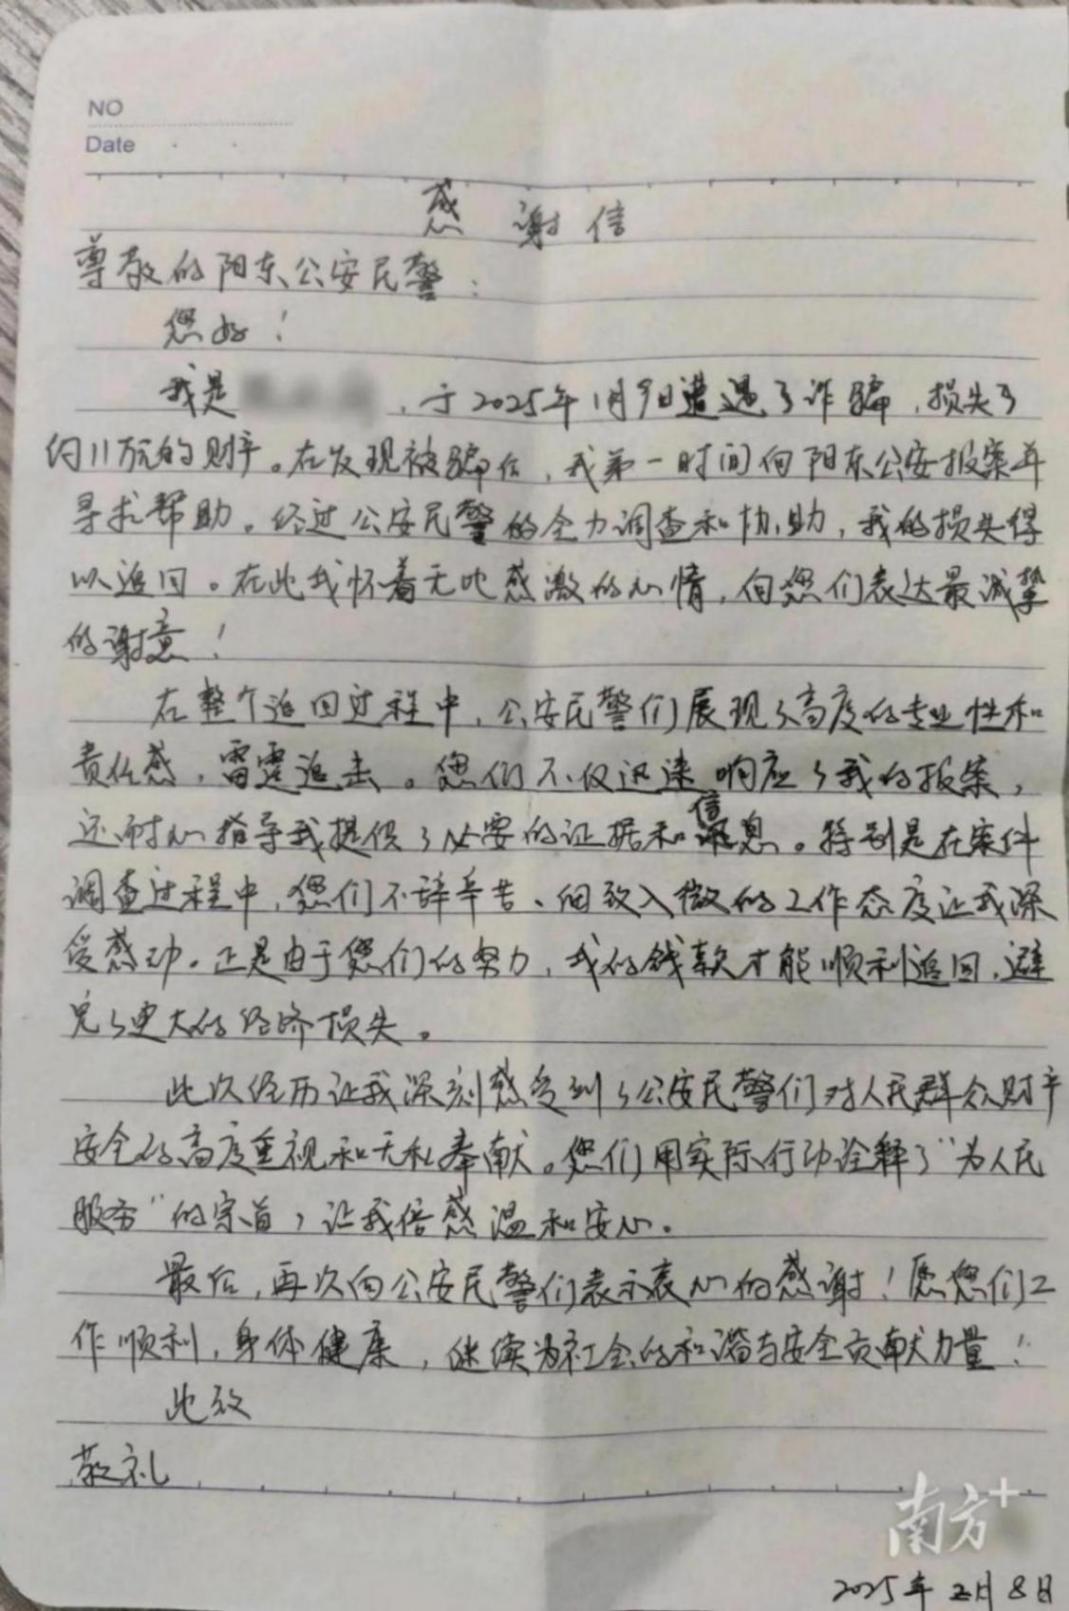 NO
Date
感谢信
尊敬的阳东公安民警：
您好！
我是，于2025年1月9日遭遇了诈骗，损失了
约11万元的财产。在发现被骗后，我第一时间向阳东公安报案并
寻求帮助。经过公安民警的全力调查和协助，我的损失得
以追回。在此我怀着无比感激的心情，向您们表达最诚挚
的谢意！
在整个追回过程中，公安民警们展现了高度的专业性和
责任感，雷霆追击。您们不仅迅速响应了我的报案，
还耐心指导我提供了必要的证据和信息。特别是在案件
调查过程中，您们不辞辛苦、细致入微的工作态度让我深
受感动。正是由于您们的努力，我的钱款才能顺利追回，避
免了更大的经济损失。
此次经历让我深刻感受到了公安民警们对人民群众财产
安全的高度重视和无私奉献。您们用实际行动诠释了"为人民
服务"的宗旨，让我倍感温和安心。
最后，再次向公安民警们表示衷心的感谢！愿您们工
作顺利，身体健康，继续为社会的和谐与安全贡献力量！
此致
敬礼
南方+
2025年2月8日